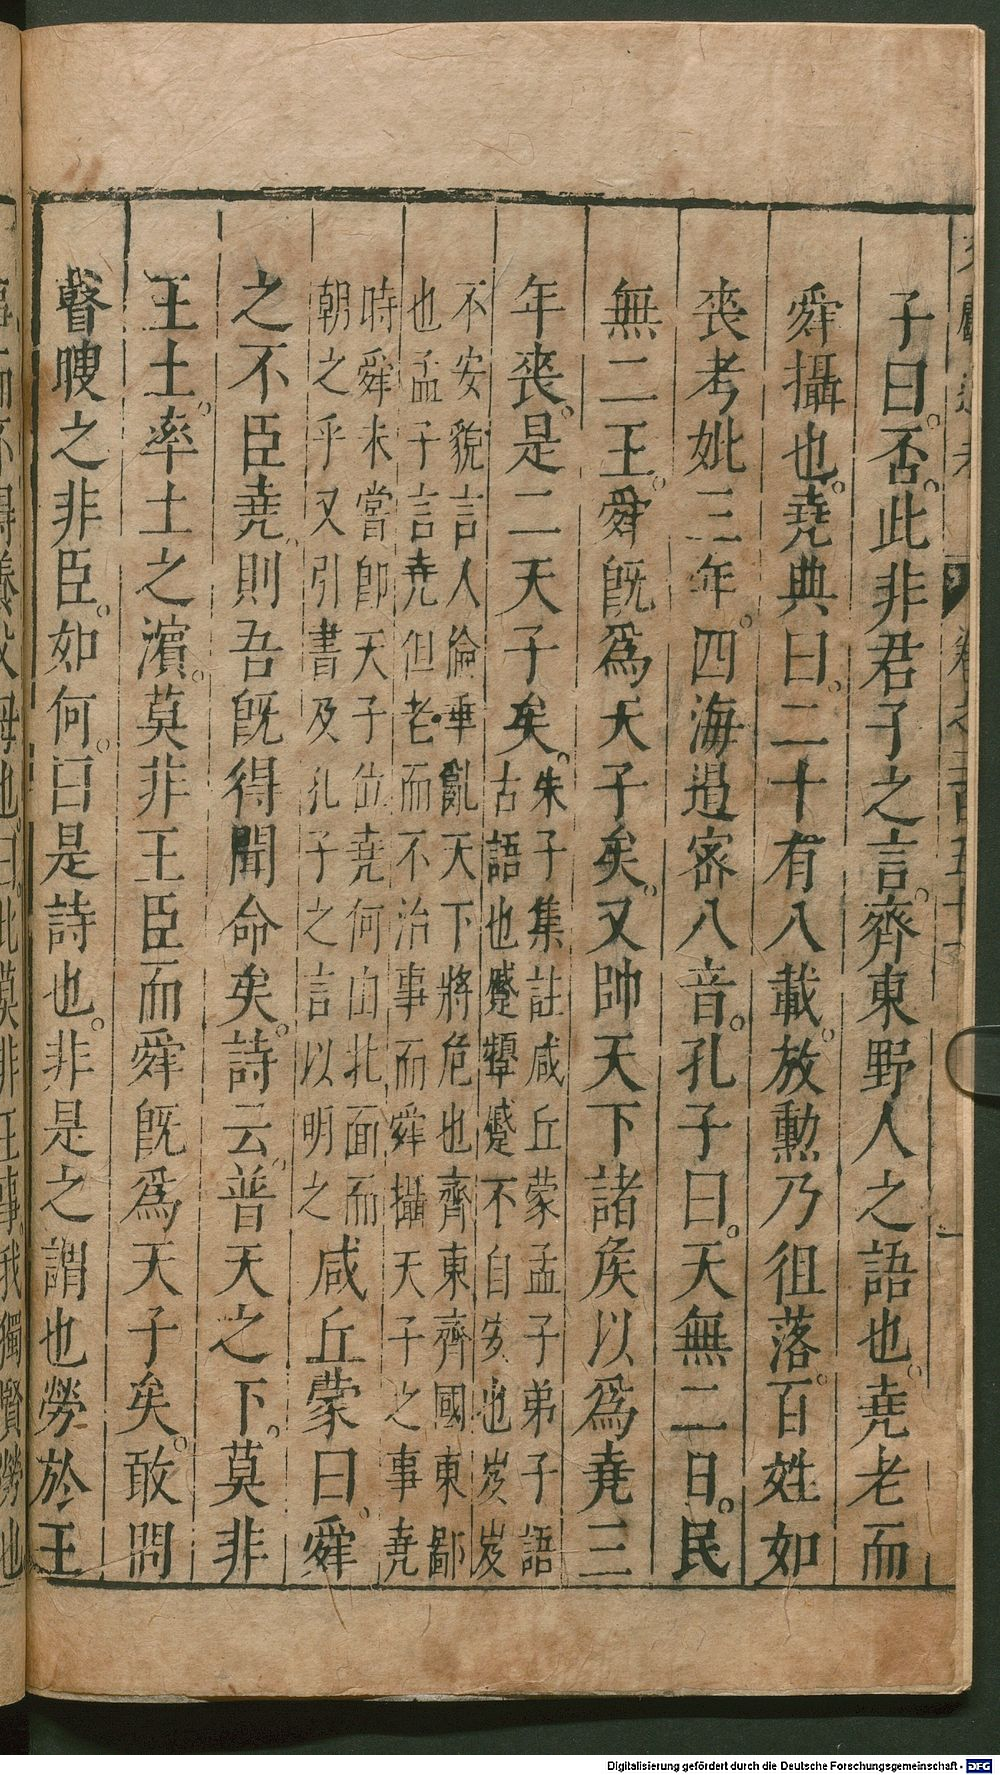 子曰。否。此非君子之言。齊東野人之語也。堯老而
舜攝也。堯典曰。二十有八載。放勳乃徂落。百姓如
喪考妣三年。四海遏密八音。孔子曰。天無二日。民
無二王。舜旣爲天子矣。又帥天下諸侯以爲堯三
年喪。是二天子矣。朱子集註咸丘蒙孟子弟子語
古語也蹙顰蹙不自安也岌岌
不安貌言人倫乖亂天下將危也齊東齊國東鄙
也孟子言堯但老而不治事而舜攝天子之事堯
時舜未嘗卽天子位堯何由北面而
朝之乎又引書及孔子之言以明之咸丘蒙曰。舜
之不臣堯則吾旣得聞命矣。詩云。普天之下。莫非
王土。率土之濱。莫非王臣而舜旣爲天子矣。敢問
瞽瞍之非臣。如何。曰是詩也。非是之謂也勞於王
卷之二百五十